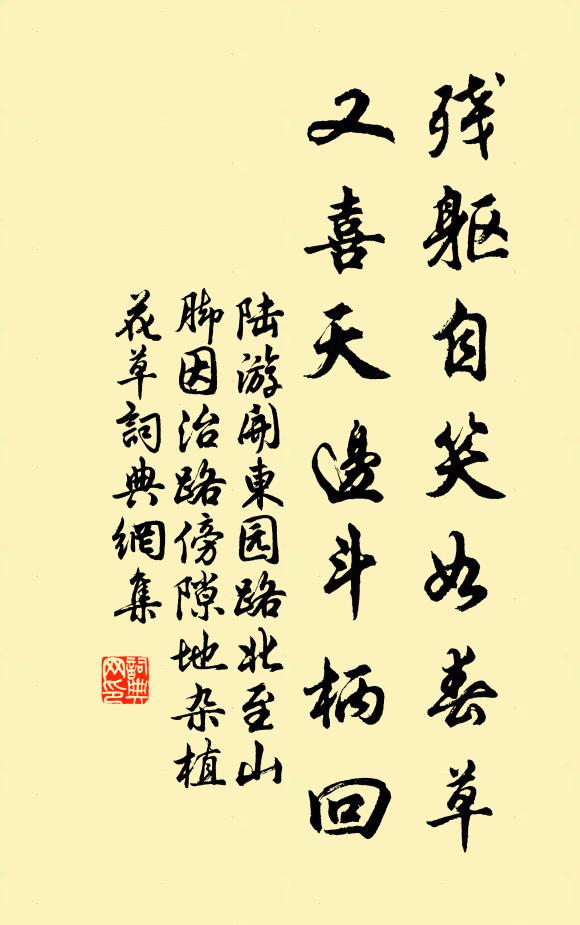 残躯自笑如春草
又喜天邊斗柄回
陆游開東园路北至山
脚因治路傍隙地杂植
花草詞典網集
詞典
网印